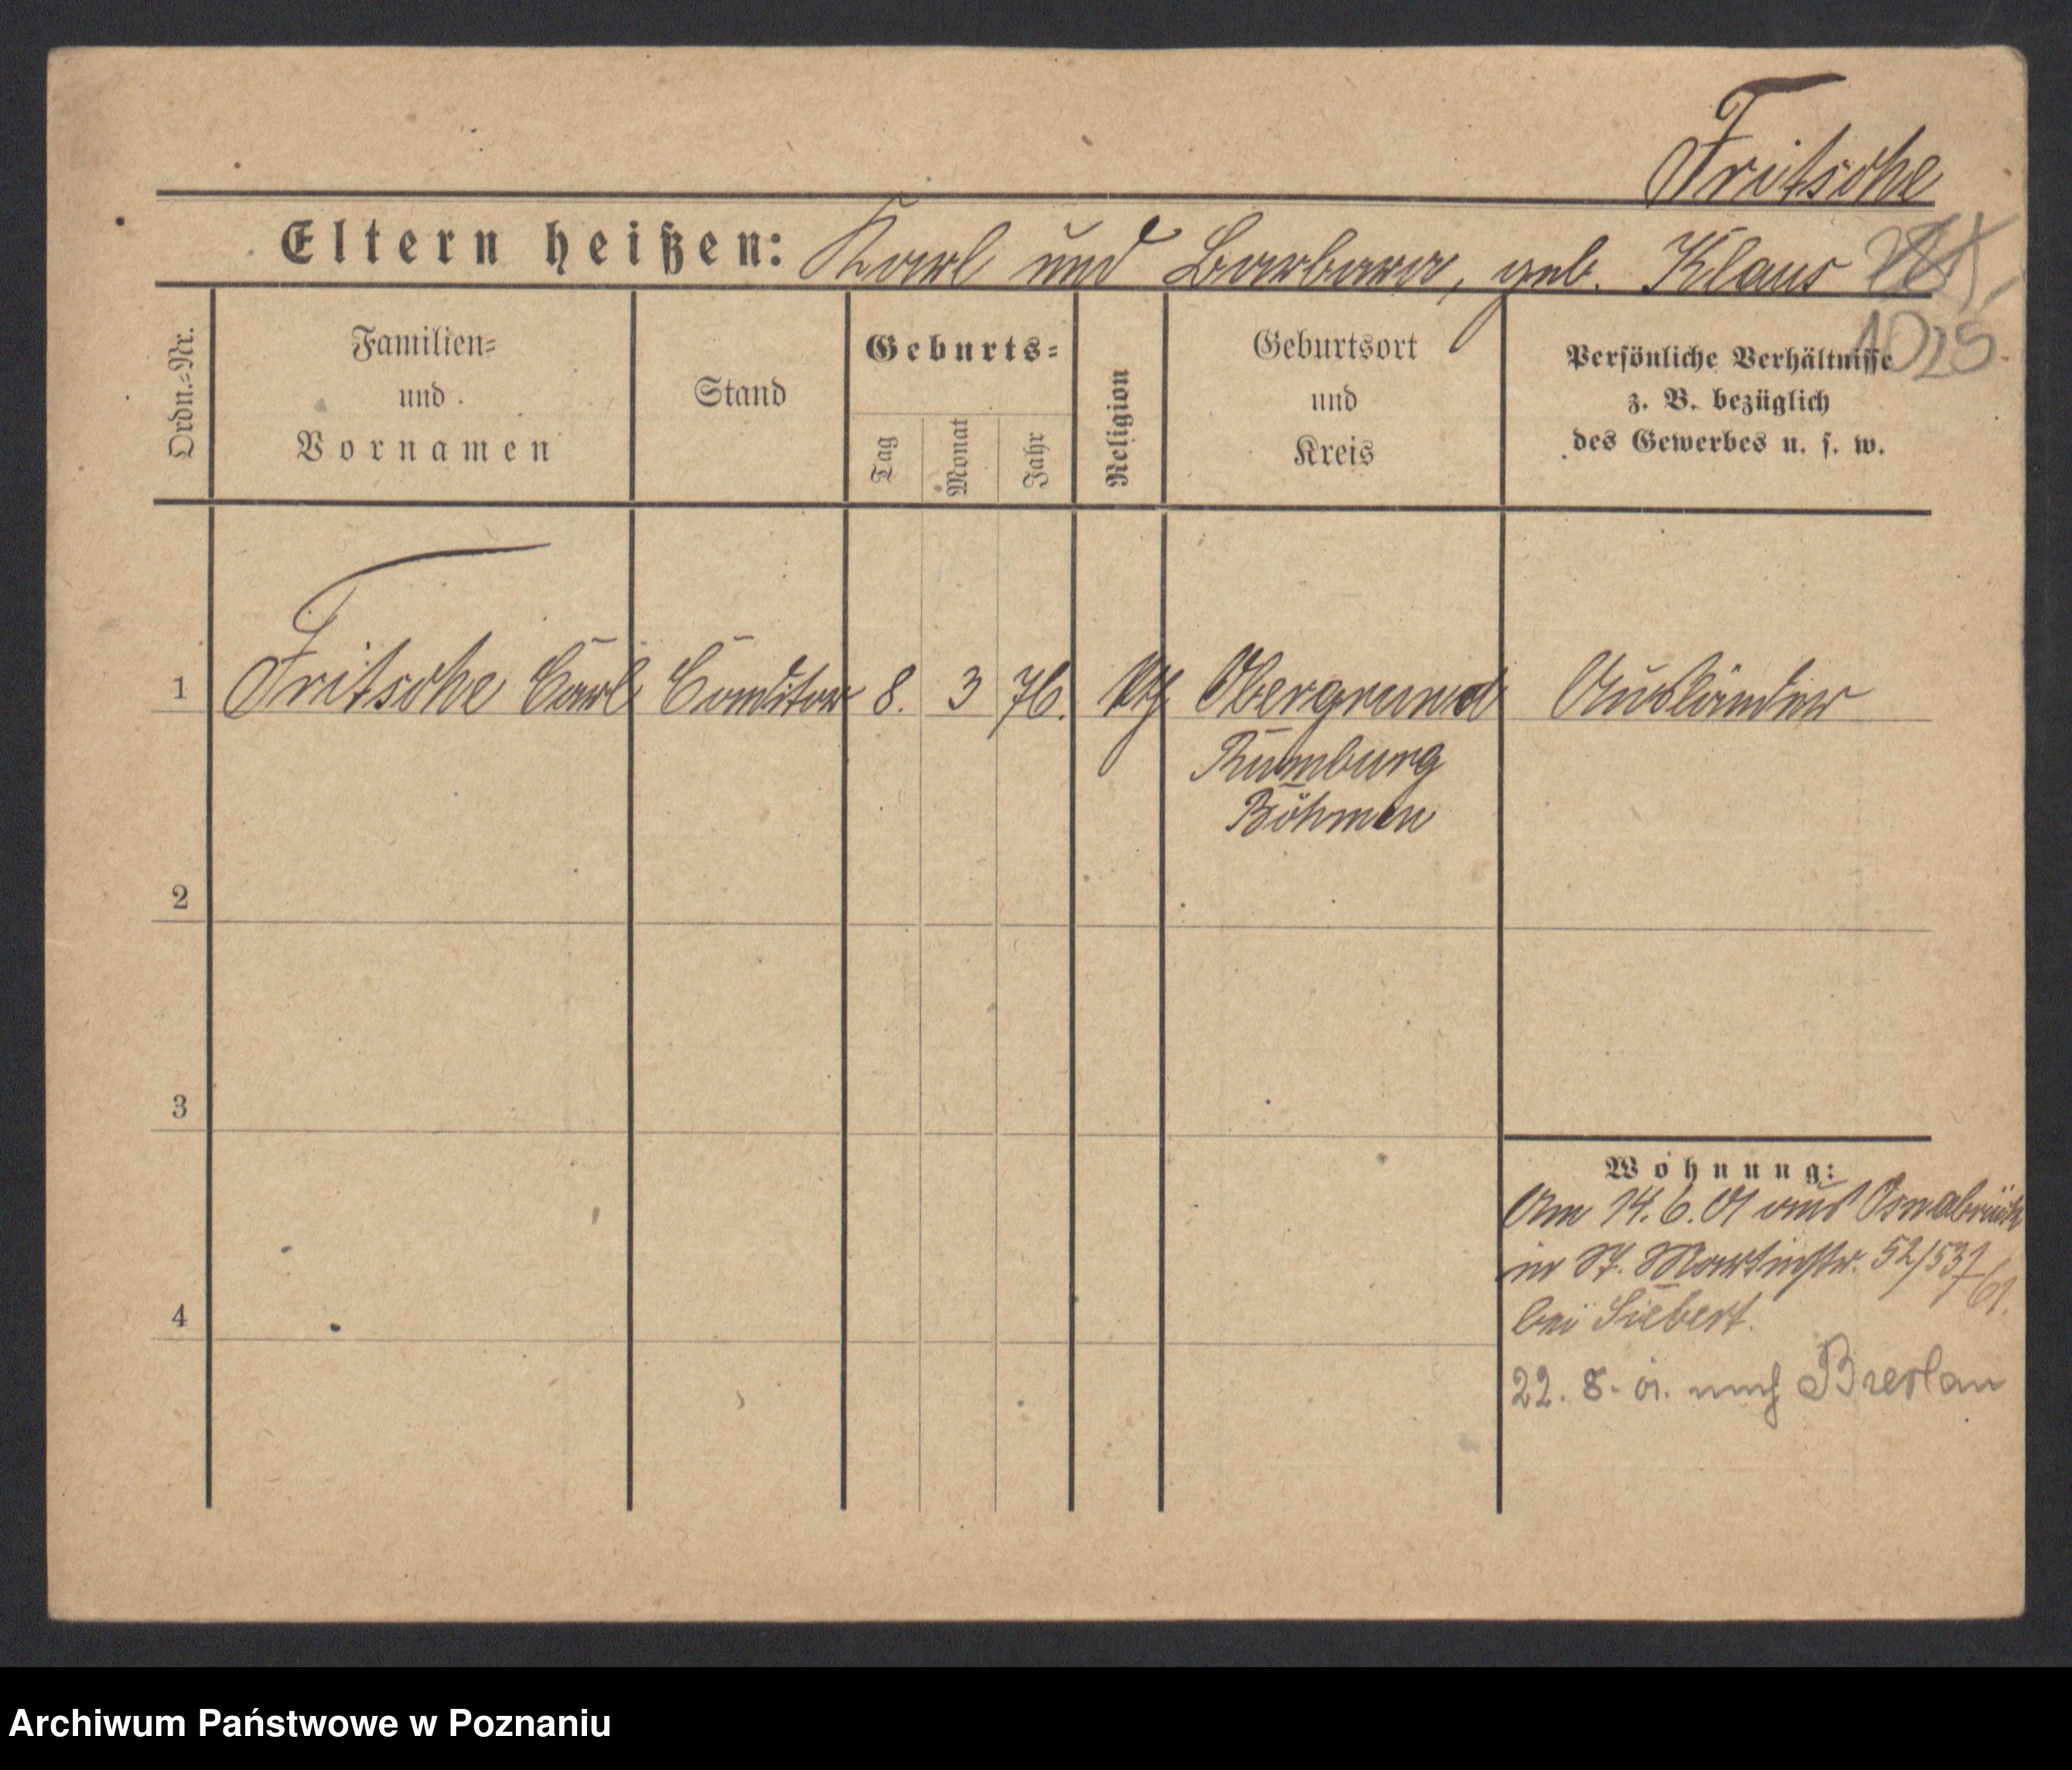 Fritsche
Eltern heißen: Karl und Barbara, geb. Klaus
1025.
Ordn.=Nr.
Familien=
und
Vornamen
Stand
Geburts=
Tag
Monat
Jahr
Religion
Geburtsort
und
Kreis
Persönliche Verhältnisse
z. B. bezüglich
des Gewerbes u. s. w.
1 Fritsche Carl Conditor 8. 3 76. kth Obergrund Ausländer
Rumburg
Böhmen
2
3
Wohnung:
Am 14. 6. 01 aus Osnabrück
in St. Martinstr. 52/53
bei Siebert.
4
22. 8. 01. nach Breslau
Archiwum Państwowe w Poznaniu